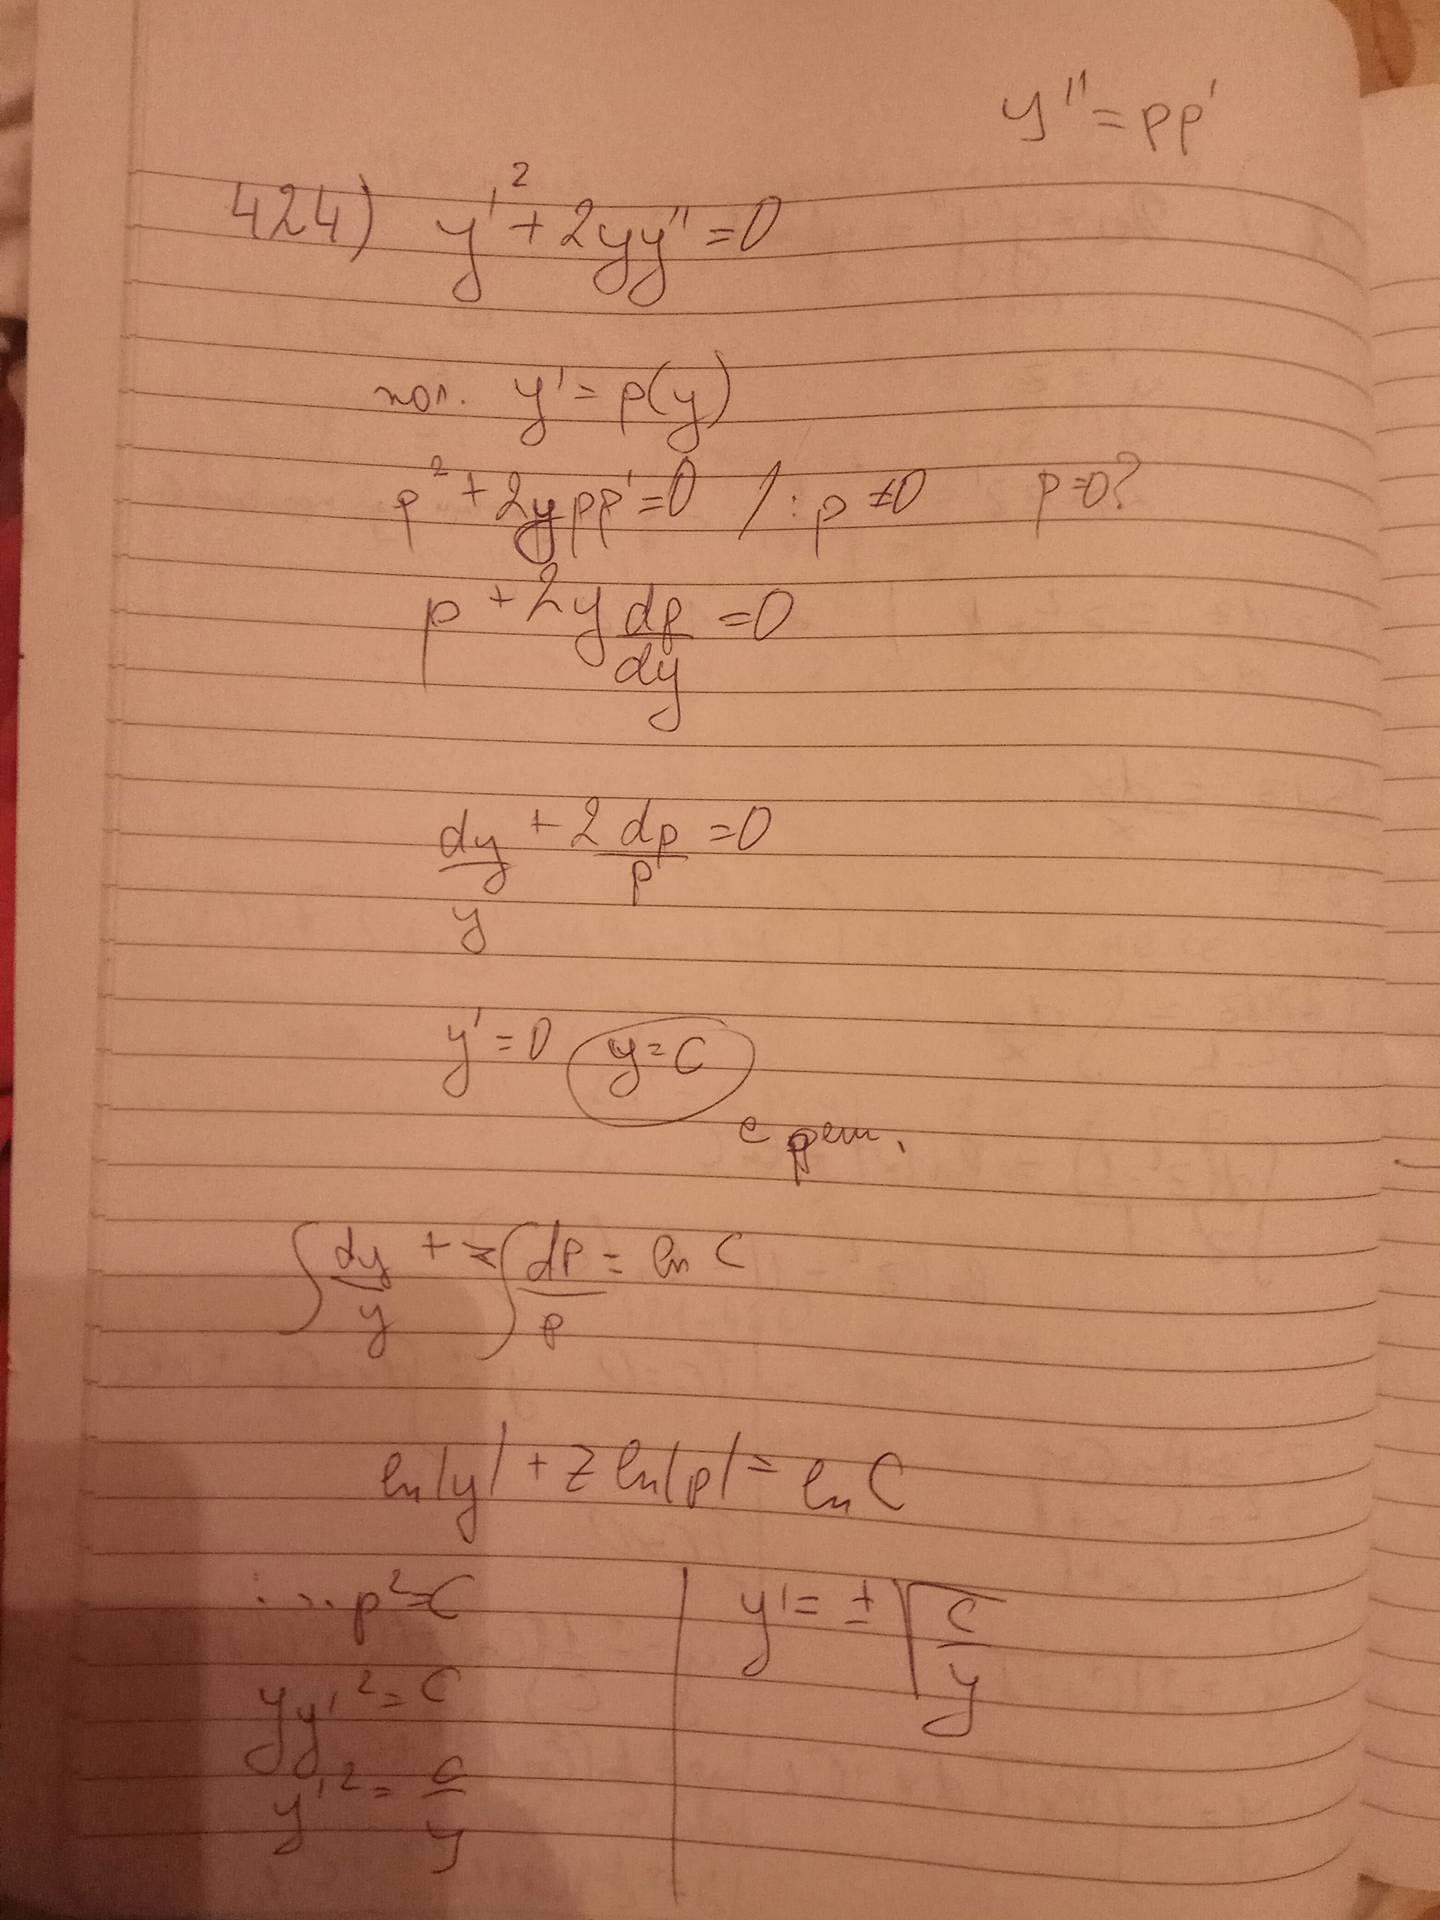 y'' = pp'
424) y'² + 2yy'' = 0
пол. y' = p(y)
p² + 2ypp' = 0 /: p ≠ 0 p=0?
p + 2y dp/dy = 0
dy/y + 2 dp/p = 0
y' = 0 y = C
е реш.
∫ dy/y + 2 ∫ dp/p = ln C
ln|y| + 2 ln|p| = ln C
p² = C
yy'² = C
y'² = C/y
y' = ± √(C/y)